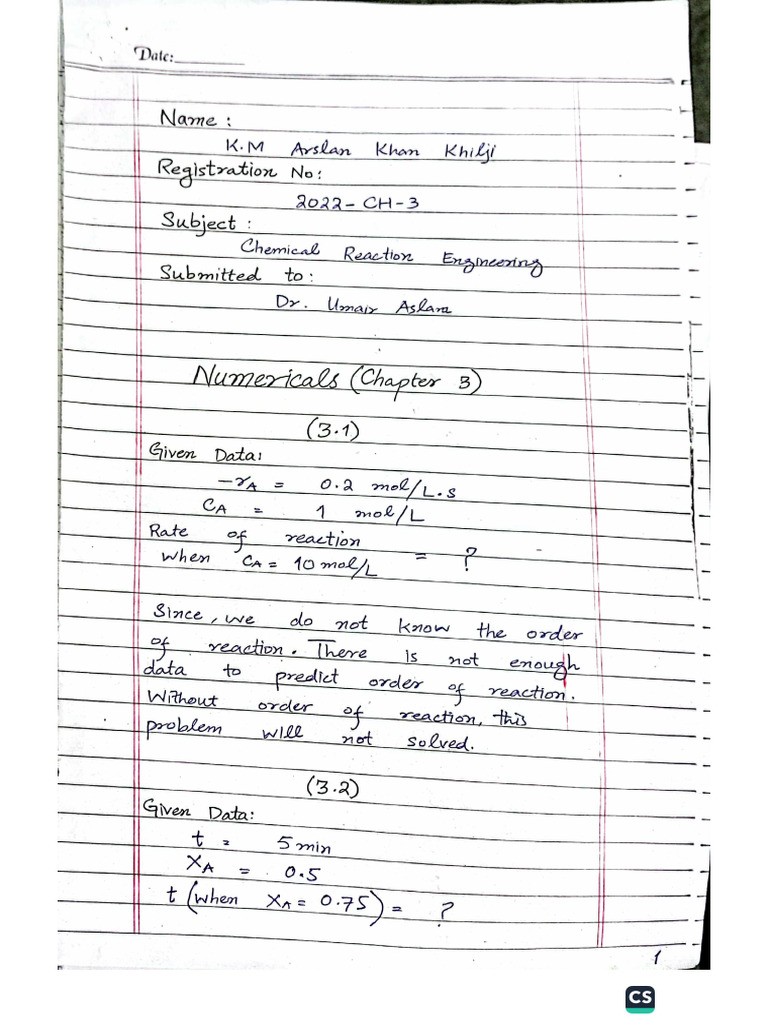 Date:
Name :
K.M Arslan Khan Khilji
Registration No:
2022-CH-3
Subject :
Chemical Reaction Engineering
Submitted to :
Dr. Umair Aslam
Numericals (Chapter 3)
(3.1)
Given Data:
-rA = 0.2 mol/L.s
CA = 1 mol/L
Rate of reaction
when CA = 10 mol/L = ?
Since, we do not know the order
of reaction. There is not enough
data to predict order of reaction.
Without order of reaction, this
problem will not solved.
(3.2)
Given Data:
t = 5 min
XA = 0.5
t (when XA = 0.75) = ?
1
CS